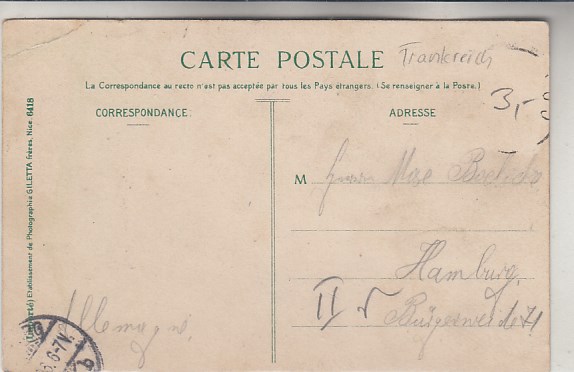 CARTE POSTALE Frankreich
La Correspondance au recto n'est pas acceptée par tous les Pays étrangers. (Se renseigner à la Poste.)
CORRESPONDANCE:
ADRESSE
3,-
Etablissement de Photographie GILETTA frères, Nice 6418
M Herrn
Hamburg,
II
Allemagne,
6-7N